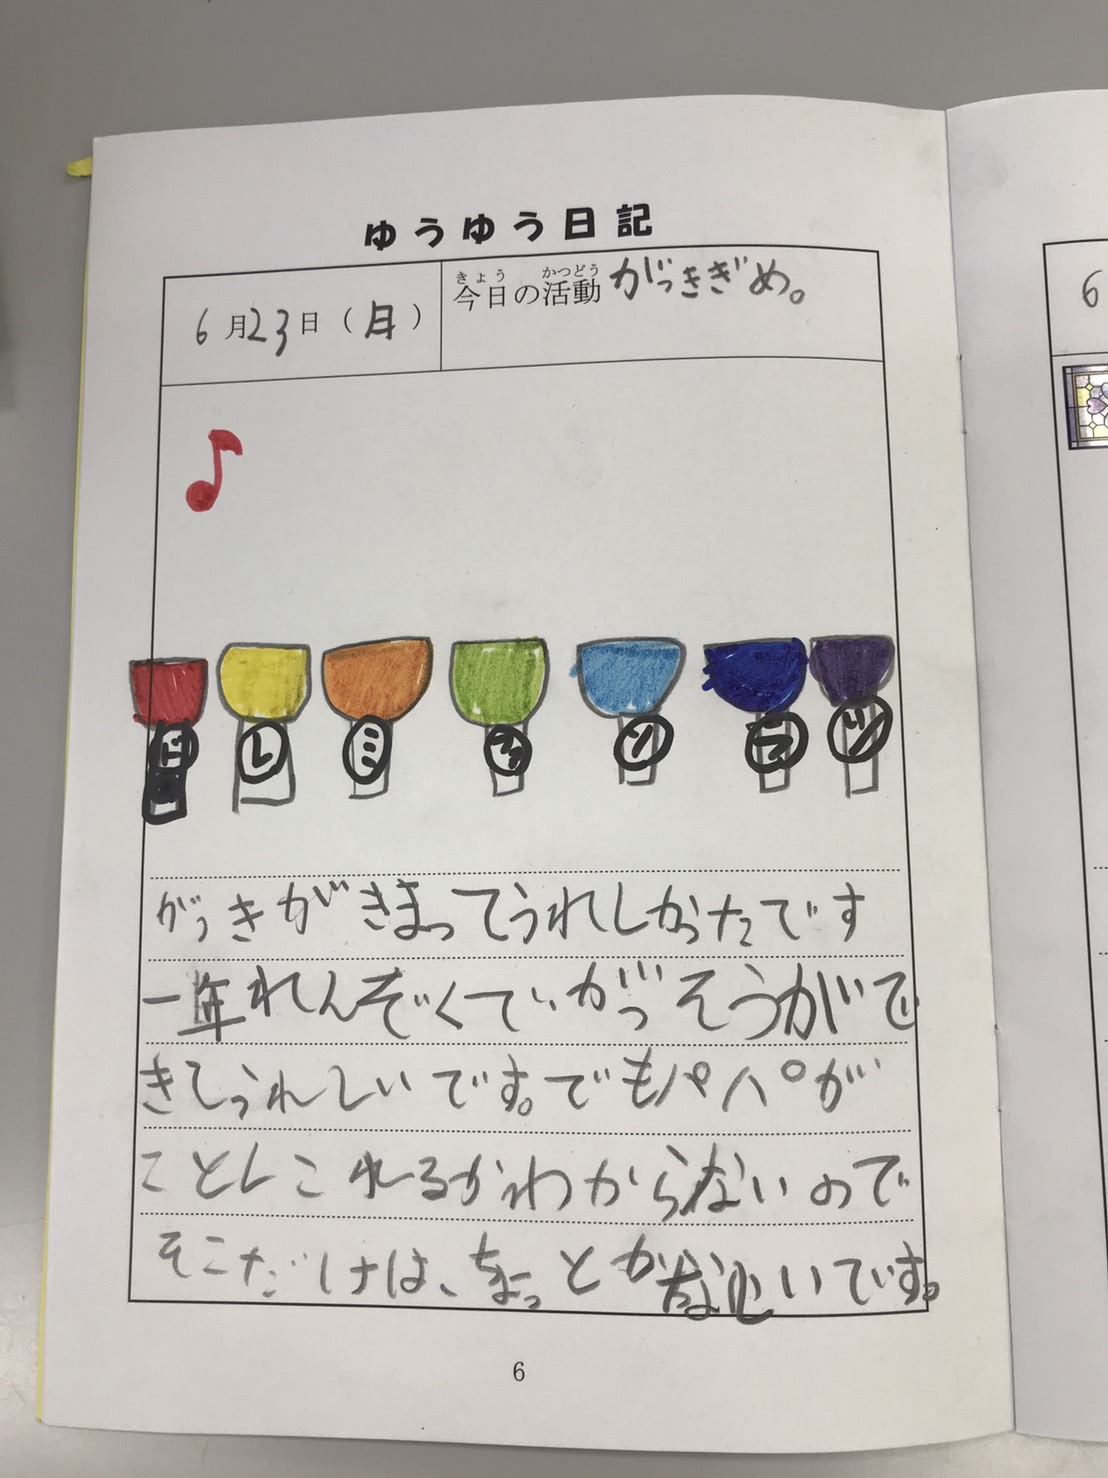 ゆうゆう日記
6月23日(月)
きょう かつどう
今日の活動 がっきぎめ。
ド レ ミ ファ ソ ラ ツ
がっきがきまってうれしかったです
一年れんぞくてぃがっそうがで
きてうれしいです。でもパパが
ことしこれるかわからないので
そこだけは、ちょっとかなしいです。
6
6